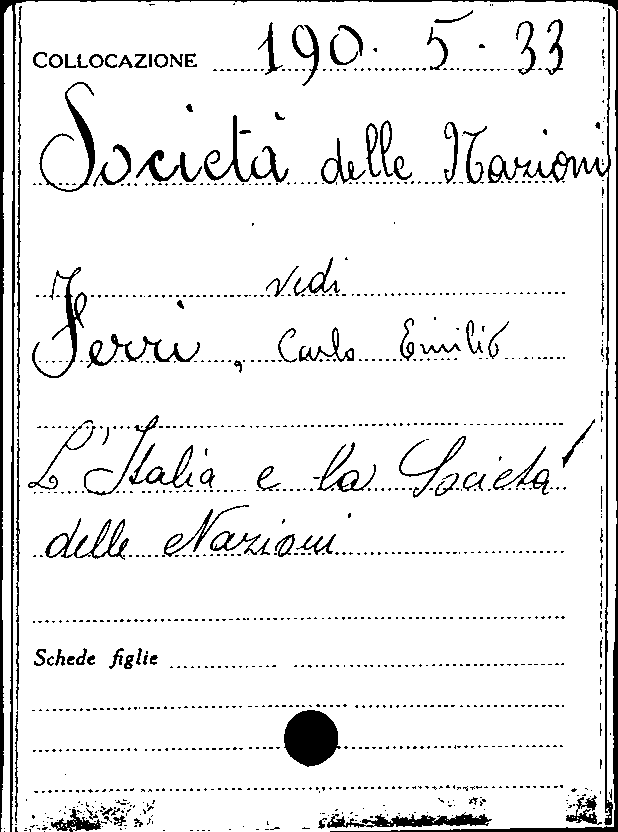 COLLOCAZIONE 190. 5. 33
Società delle Nazioni
vedi
Ferri, Carlo Emilio
L'Italia e la Società
delle Nazioni
Schede figlie